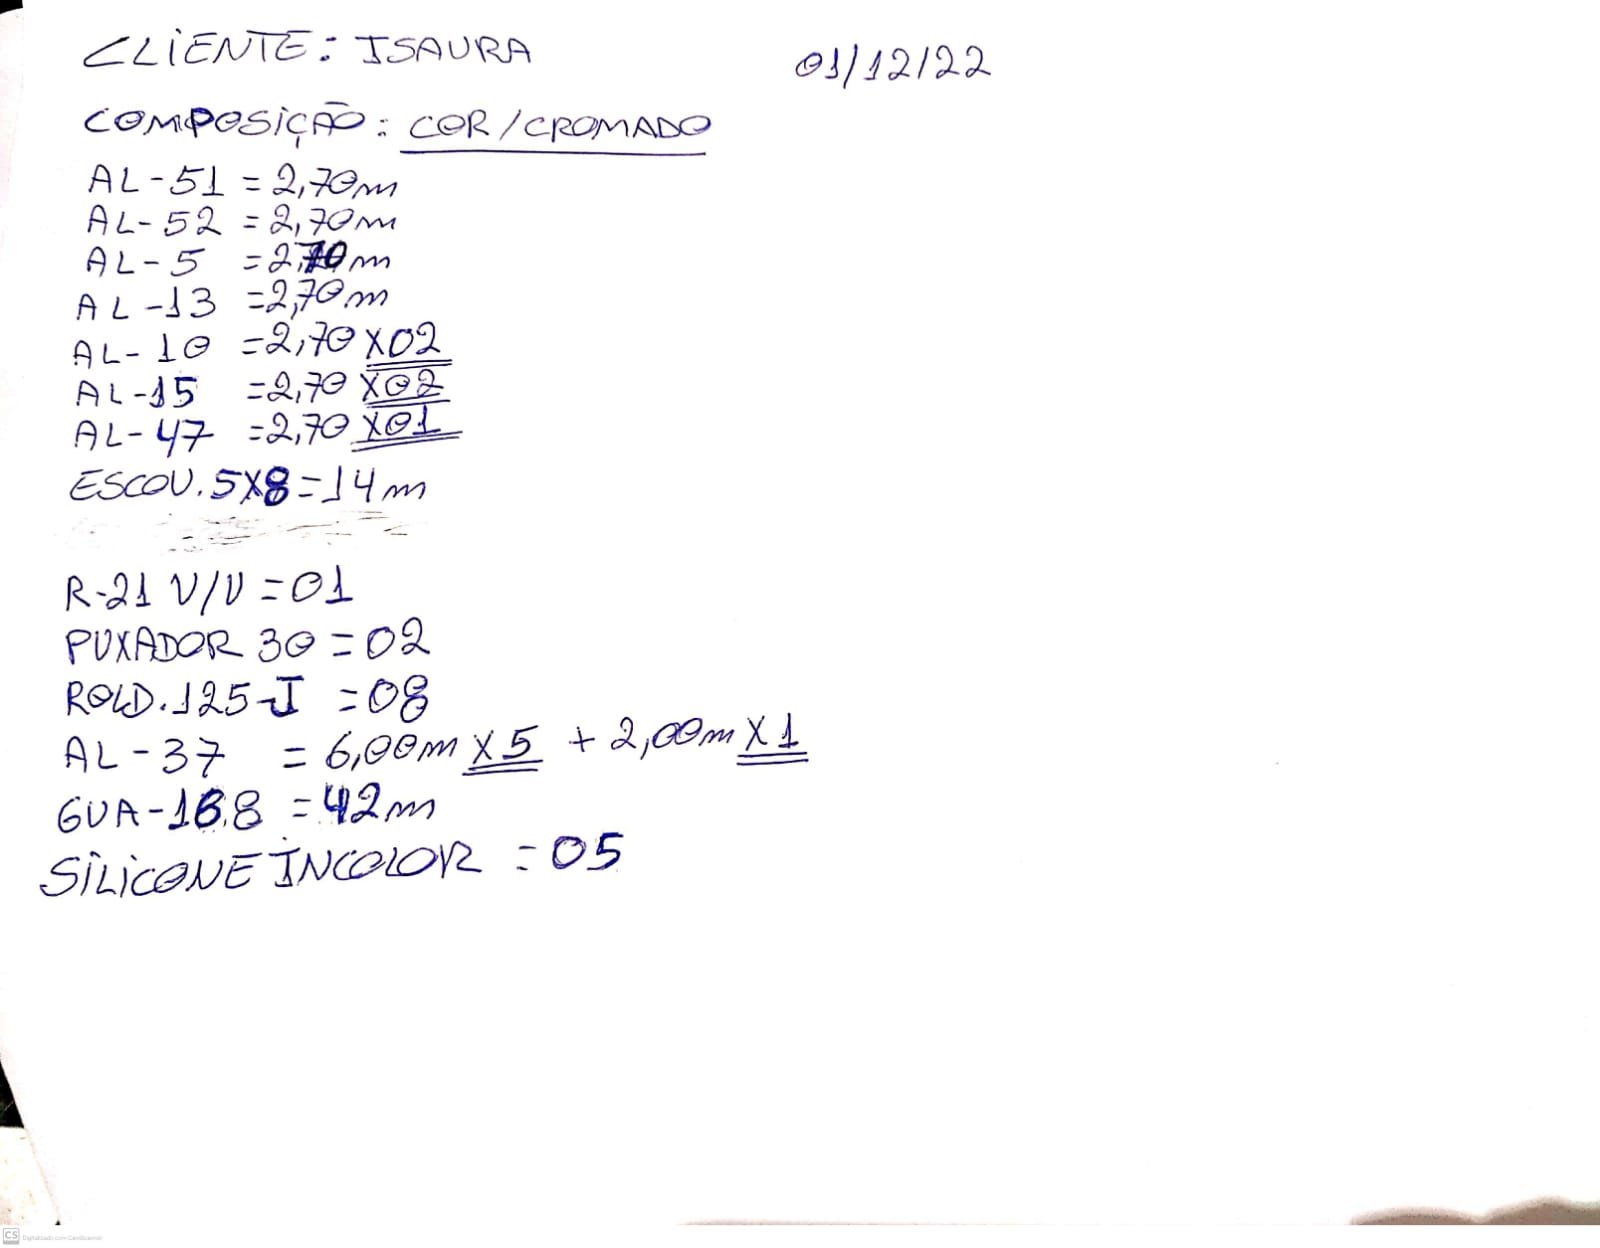 CLIENTE: ISAURA
01/12/22
COMPOSIÇÃO: COR/CROMADO
AL-51 = 2,70m
AL-52 = 2,70m
AL-5 = 2,70m
AL-13 = 2,70m
AL-10 = 2,70 X02
AL-15 = 2,70 X02
AL-47 = 2,70 X01
ESCOV. 5X8 = 14m
R-21 V/V = 01
PUXADOR 30 = 02
ROLD. 125-J = 08
AL-37 = 6,00m X 5 + 2,00m X 1
GUA- = 42m
SILICONE INCOLOR = 05
CS Digitalizado com CamScanner